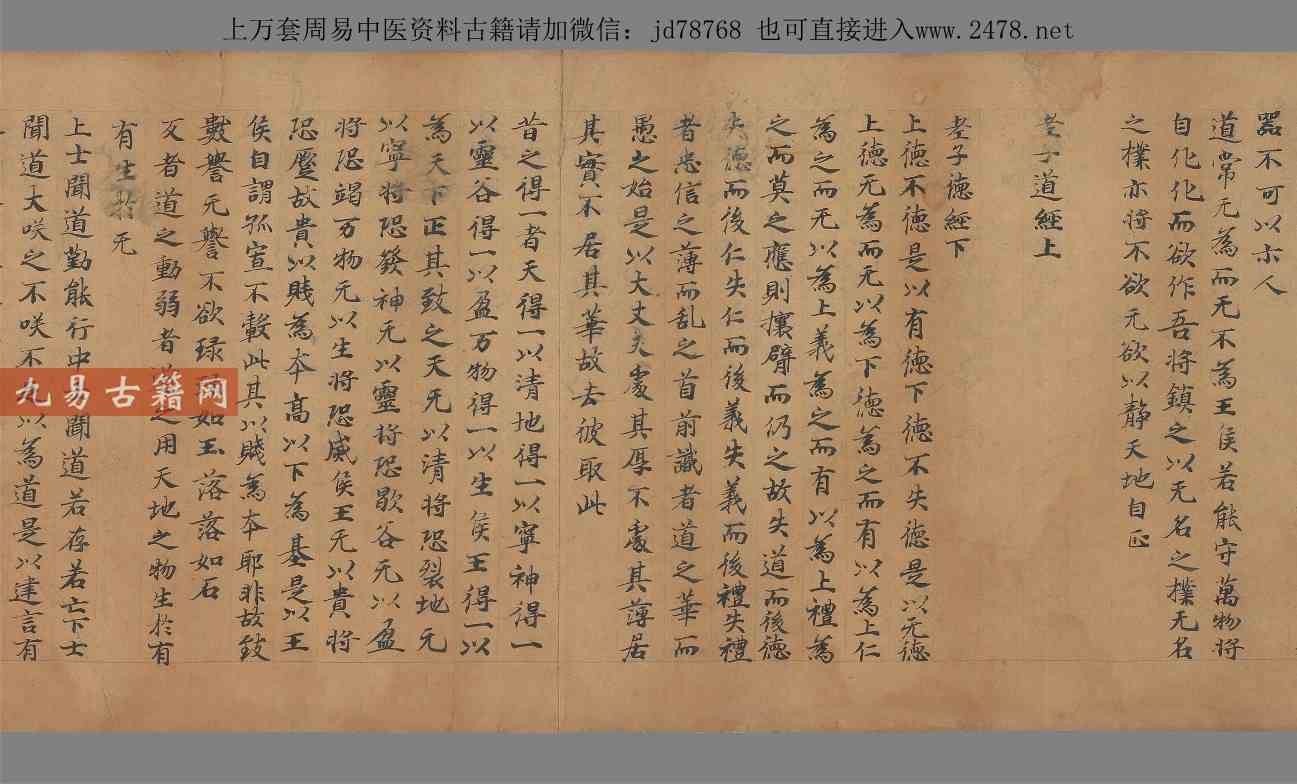 上万套周易中医资料古籍请加微信：jd78768 也可直接进入www.2478.net
器不可以示人
道常无為而无不為王侯若能守萬物将
自化化而欲作吾将鎮之以无名之樸无名
之樸亦将不欲无欲以静天地自正
老子道經上
老子德經下
上德不德是以有德下德不失德是以无德
上德无為而无以為下德為之而有以為上仁
為之而无以為上義為之而有以為上禮為
之而莫之應則攘臂而仍之故失道而後德
失德而後仁失仁而後義失義而後禮失禮
者忠信之薄而乱之首前識者道之華而
愚之始是以大丈夫處其厚不處其薄居
其實不居其華故去彼取此
昔之得一者天得一以清地得一以寧神得一
以靈谷得一以盈万物得一以生侯王得一以
為天下正其致之天无以清将恐裂地无
以寧将恐發神无以靈将恐歇谷无以盈
将恐竭万物无以生将恐滅侯王无以貴将
恐蹷故貴以賤為本高以下為基是以王
侯自謂孤寡不轂此其以賤為本耶非故致
數譽无譽不欲琭如玉落落如石
反者道之動弱者之用天地之物生於有
有生於无
上士聞道勤能行中聞道若存若亡下士
聞道大咲之不咲不以為道是以建言有
九易古籍网